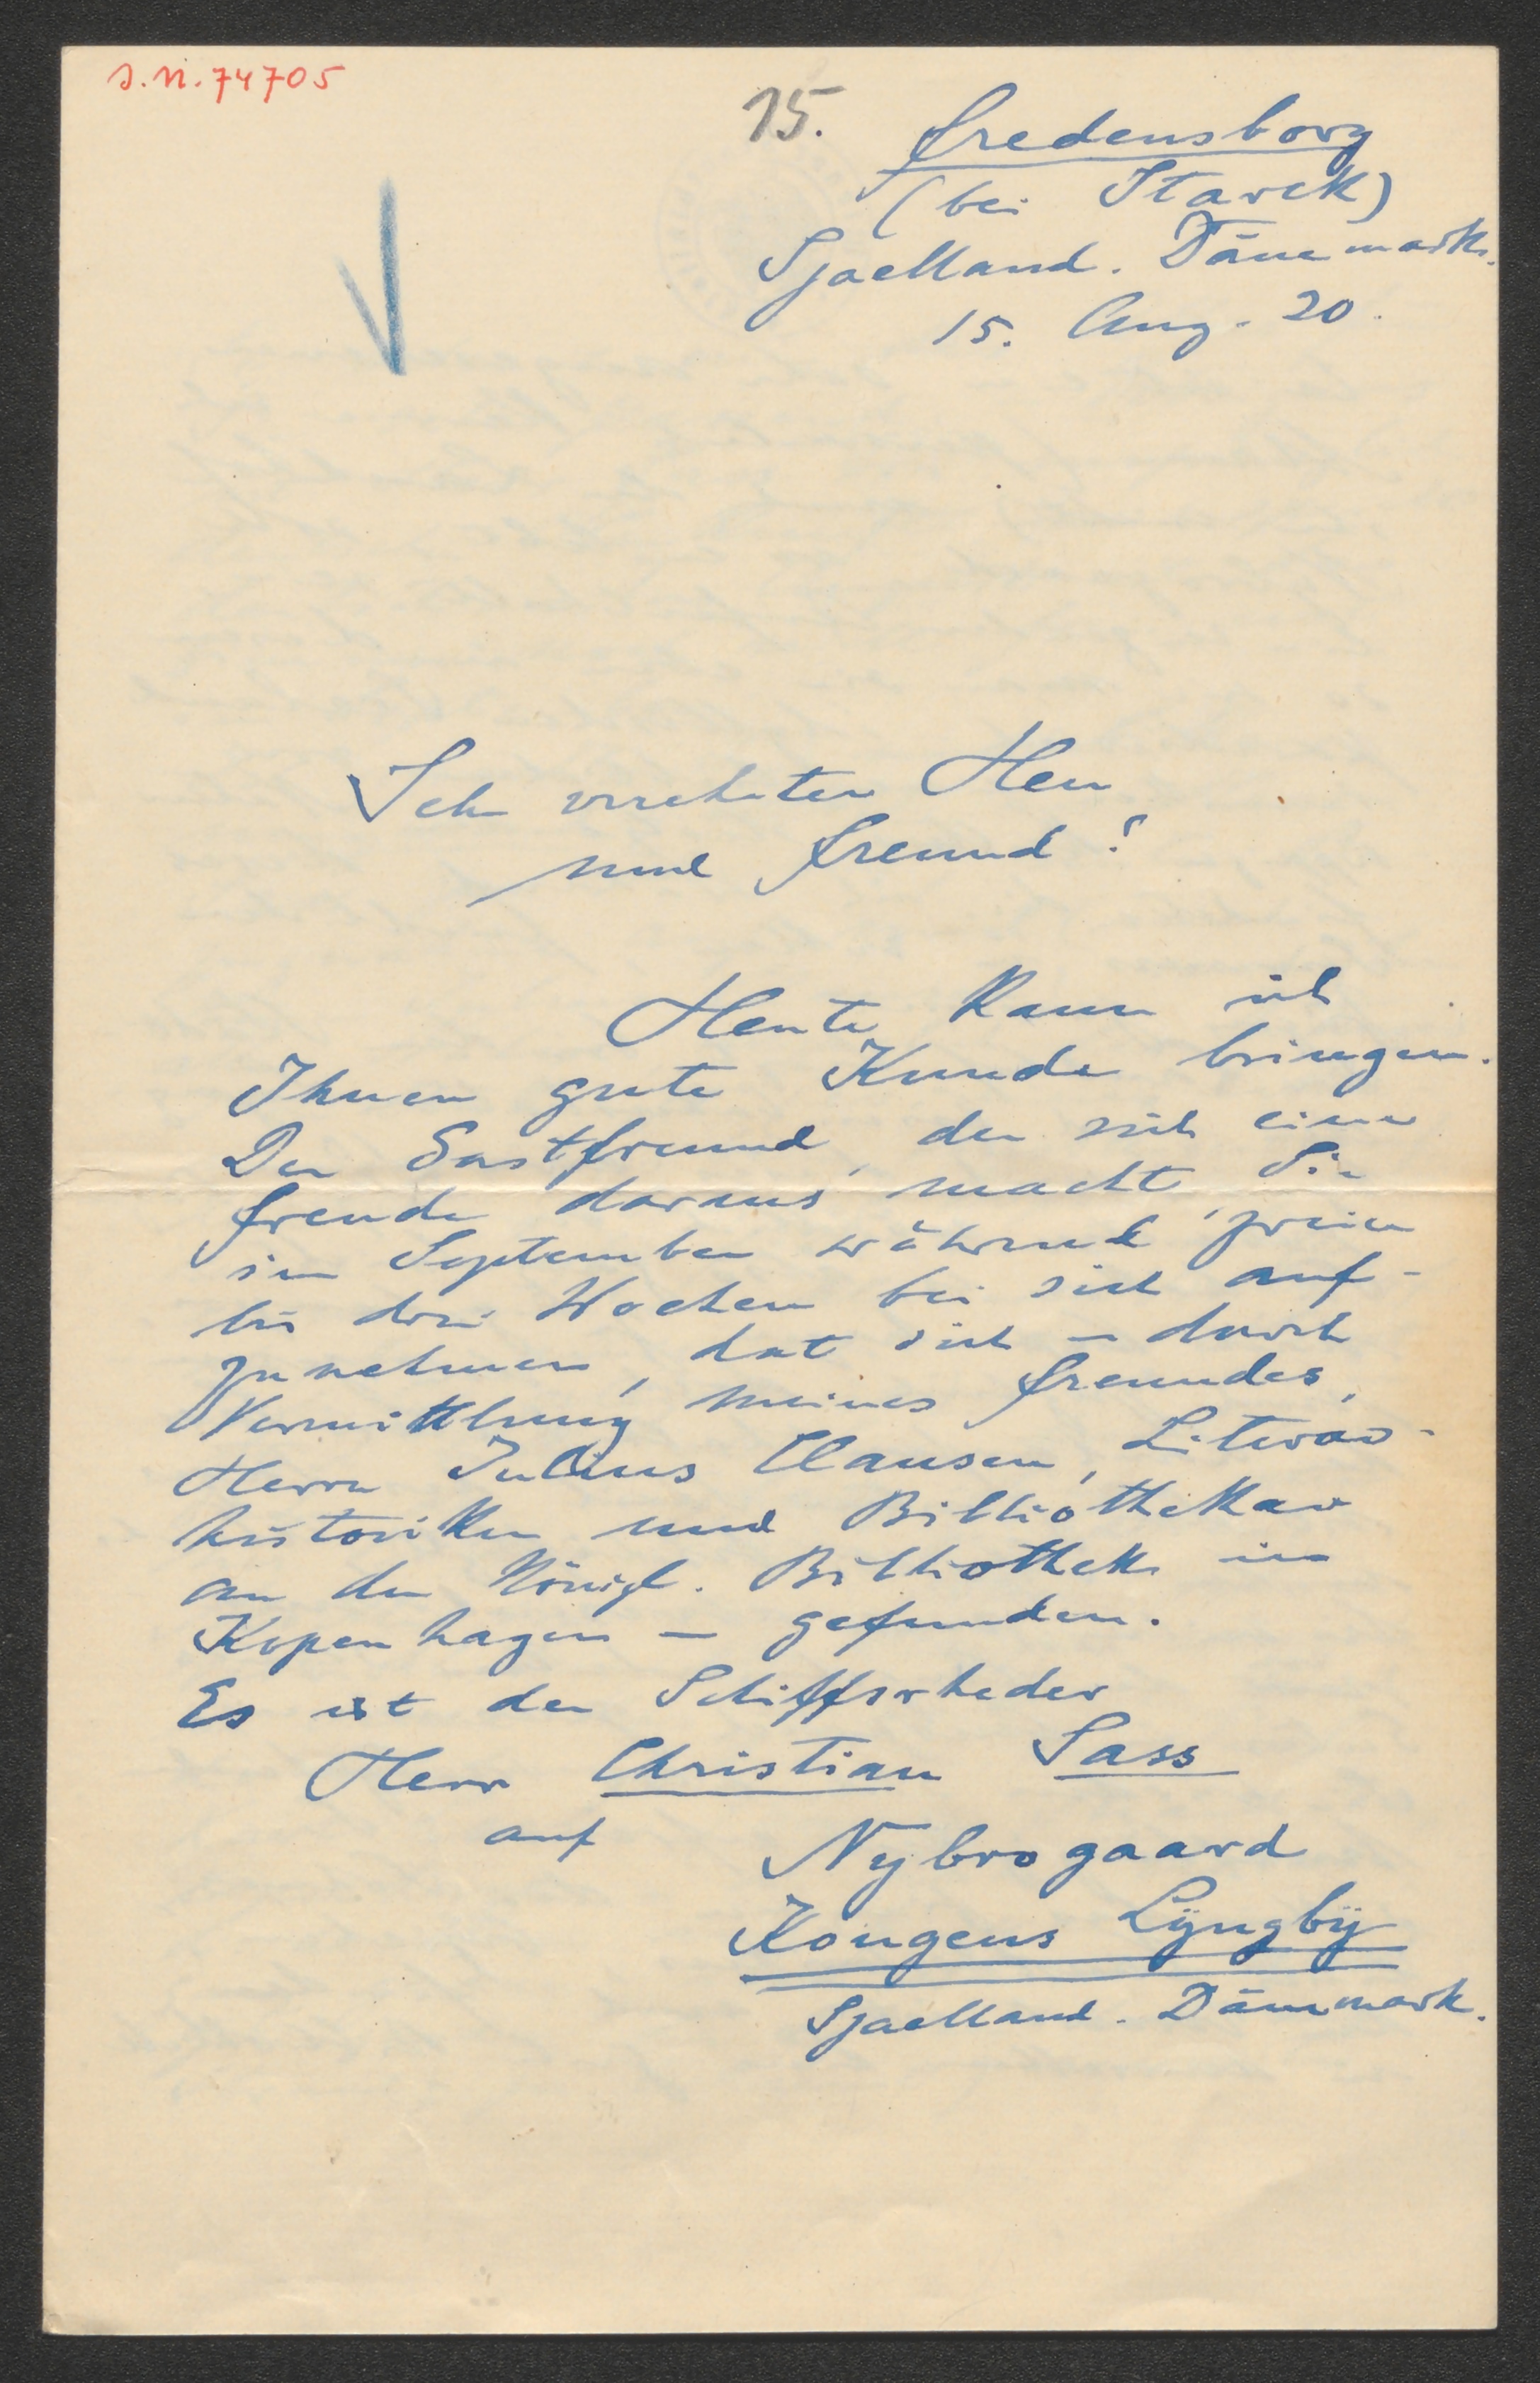 J.N. 74705
15.
Fredensborg
(bei Starck)
Sjaelland. Dänemark.
15. Aug. 20.
Sehr verehrter Herr
und Freund!
Heute kann ich
Ihnen gute Kunde bringen.
Der Gastfreund, der sich eine
Freude daraus macht, Sie
im September während zweier
bis drei Wochen bei sich auf-
zunehmen, hat sich – durch
Vermittlung meines Freundes,
Herrn Julius Clausen, Literar-
historiker und Bibliothekar
an der Königl. Bibliothek in
Kopenhagen – gefunden.
Es ist der Schiffsrheder
Herr Christian Sass
auf
Nybrogaard
Kongens Lÿngbÿ
Sjaelland. Dänemark.